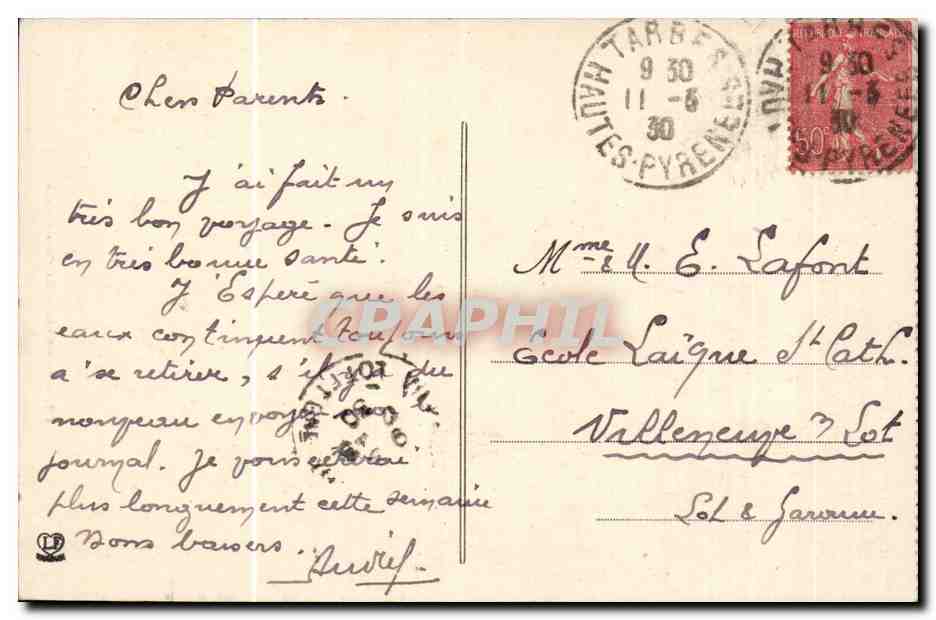 Chers Parents.
J'ai fait un
très bon voyage. Je suis
en très bonne santé.
J'Espère que les
eaux continuent toujours
a'se retirer, s'il y a du
nouveau envoyez moi le
journal. Je vous écrirai
plus longuement cette semaine
Bons baisers.
André
TARBES
9 30
11 - 3
30
HAUTES-PYRENEES
REPUBLIQUE FRANÇAISE
TARBES
9 30
11 - 3
30
HAUTES-PYRENEES
50c
Mme & M. E. Lafont
École Laïque St Cath.
Villeneuve s/ Lot
Lot & Garonne.
CPARPHIL
LF